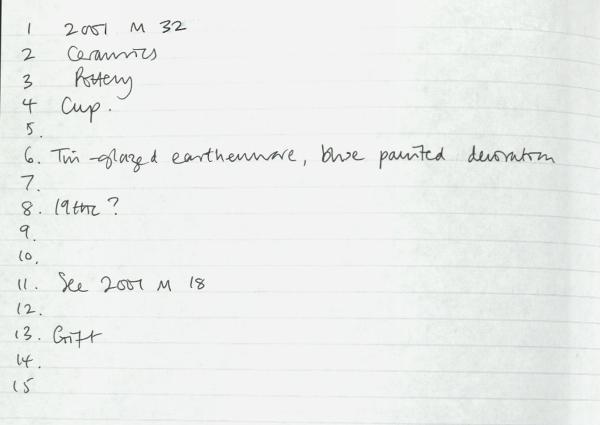 1 2001 M 32
2 Ceramics
3 Pottery
4 Cup.
5.
6. Tin-glazed earthenware, blue painted decoration
7.
8. 19thc?
9.
10.
11. See 2001 M 18
12.
13. Gift
14.
15